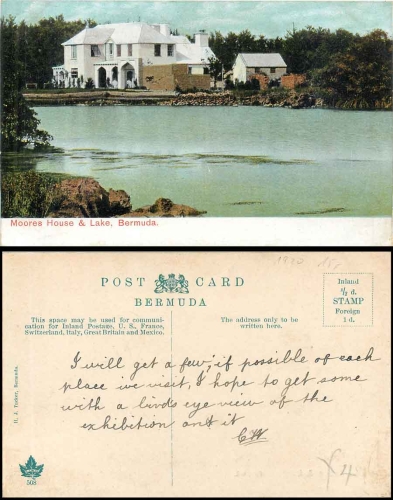 Moores House & Lake, Bermuda.
POST CARD
BERMUDA
This space may be used for communi-
cation for Inland Postage, U. S., France,
Switzerland, Italy, Great Britain and Mexico.
The address only to be
written here.
Inland
½ d.
STAMP
Foreign
1 d.
I will get a few; if possible of each
place we visit, I hope to get some
with a birds eye view of the
exhibition on it
CW
508